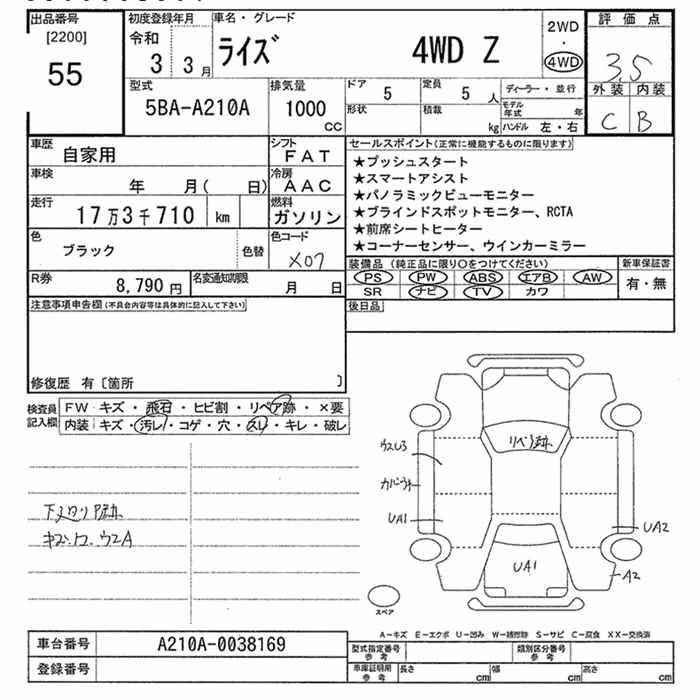 出品番号
[2200]
55
初度登録年月
令和
3 3月
車名・グレード
ライズ 4WD Z
2WD
・
4WD
評価点
3.5
外装 内装
C B
型式
5BA-A210A
排気量
1000
CC
ドア 5
定員 5 人
形状
積載 kg
ディーラー・並行
モデル年式 年
ハンドル 左・右
車歴 自家用
シフト FAT
車検 年 月( 日)
冷房 AAC
走行 17万3千710 km
燃料 ガソリン
色 ブラック
色替
色コード X07
R券 8,790円
名変通知期限 月 日
セールスポイント(正常に機能するものに限ります)
★プッシュスタート
★スマートアシスト
★パノラミックビューモニター
★ブラインドスポットモニター、RCTA
★前席シートヒーター
★コーナーセンサー、ウインカーミラー
装備品(純正品に限り○をつけてください)
PS PW ABS エアB AW
SR ナビ TV カワ
新車保証書
有・無
後日品
注意事項申告欄(不具合内容等は具体的に記入して下さい)
修復歴 有〔箇所 〕
検査員記入欄
FW キズ・飛石・ヒビ割・リペア跡・×要
内装 キズ・汚レ・コゲ・穴・スレ・キレ・破レ
リペア跡
ウスレ3
UA1
UA2
UA1
A2
スペア
A－キズ E－エクボ U－凹み W－補修跡 S－サビ C－腐食 XX－交換済
車台番号 A210A-0038169
登録番号
型式指定番号
参考
類別区分番号
参考
車庫証明用
参考
長さ cm
幅 cm
高さ cm